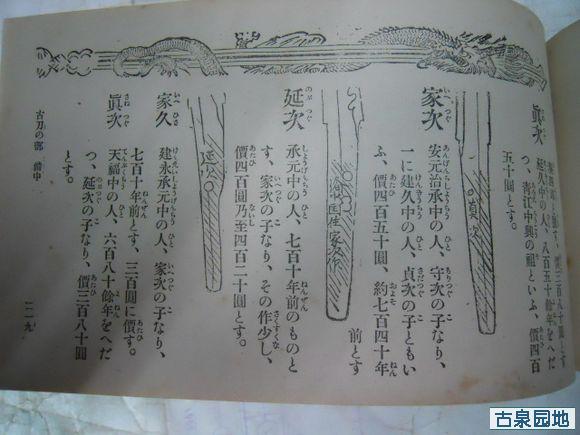 眞次
延久中の人、八百五十餘年をへだ
つ、靑江中興の祖といふ、價四百
五十圓とす。
眞次
家次
安元治承中の人、守次の子なり、
一に建久中の人、貞次の子ともい
ふ、價四百五十圓、約七百四十年
前とす
家次作
延次
承元中の人、七百十年前のものと
す、家次の子なり、その作少し、
價四百圓乃至四百二十圓とす。
延次
家久
建永承元中の人、家次の子なり、
七百十年前とす、三百圓に價す。
眞次
天福中の人、六百八十餘年をへだ
つ、延次の子なり、價三百八十圓
とす。
古刀の部 備中
二一九
古泉园地